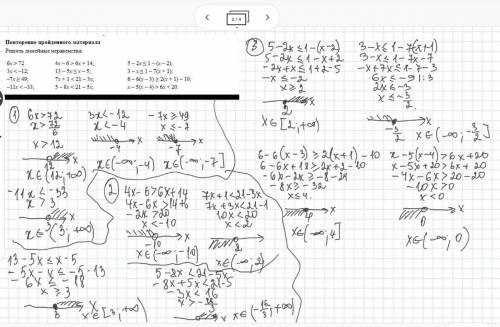 2 / 4
Повторение пройденного материала
Решить линейные неравенства:
6x > 72  4x − 6 > 6x + 14;  5 − 2x ≤ 1 − (x − 2);
3x < −12;  13 − 5x ≤ x − 5;  3 − x ≤ 1 − 7(x + 1);
−7x ≥ 49;  7x + 1 < 21 − 3x;  6 − 6(x − 3) ≥ 2(x + 1) − 10;
−11x < −33;  5 − 8x < 21 − 5x;  x − 5(x − 4) > 6x + 20.
① 6x > 72
x > 72/6
x > 12
12 x
x∈(12; +∞)
3x < −12
x < −4
−4 x
x∈(−∞; −4)
−7x ≥ 49
x ≤ −7
−7 x
x∈(−∞; −7]
−11x < −33
x > 3
x∈(3; +∞)
② 4x − 6 > 6x + 14
4x − 6x > 14 + 6
−2x > 20
x < −10
−10 x
x∈(−∞; −10)
7x + 1 < 21 − 3x
7x + 3x < 21 − 1
10x < 20
x < 2
2 x
x∈(−∞; 2)
13 − 5x ≤ x − 5
−5x − x ≤ −5 − 13
−6x ≤ −18
x ≥ 3
3 x
x∈[3; +∞)
5 − 8x < 21 − 5x
−8x + 5x < 21 − 5
−3x < 16
x
③ 5 − 2x ≤ 1 − (x − 2)
5 − 2x ≤ 1 − x + 2
−2x + x ≤ 1 + 2 − 5
−x ≤ −2
x ≥ 2
2 x
x∈[2; +∞)
3 − x ≤ 1 − 7(x + 1)
3 − x ≤ 1 − 7x − 7
−x + 7x ≤ 1 − 7 − 3
6x ≤ −9 | : 3
2x ≤ −3
x ≤ −3/2
−3/2 x
6 − 6(x − 3) ≥ 2(x + 1) − 10
6 − 6x + 18 ≥ 2x + 2 − 10
−6x − 2x ≥ −8 − 24
−8x ≥ −32
x ≤ 4
x
x∈(−∞; 4]
x − 5(x − 4) > 6x + 20
x − 5x + 20 > 6x + 20
−4x − 6x > 20 − 20
−10x > 0
x < 0
0 x
x∈(−∞; 0)